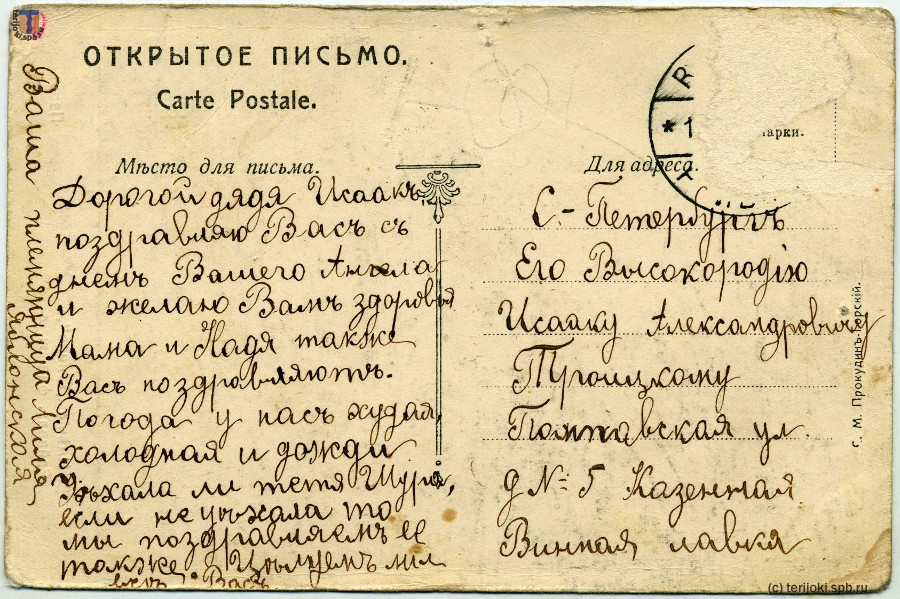 ОТКРЫТОЕ ПИСЬМО.
Carte Postale.
Мѣсто для письма.
Дорогой дядя Исаакъ,
поздравляю Васъ съ
днемъ Вашего Ангела
и желаю Вамъ здоровья
Мама и Надя также
Васъ поздравляютъ.
Погода у насъ худая,
холодная и дожди
Уѣхала ли тетя Шура,
если не уѣхала то
мы поздравляемъ ее
также Цѣлуемъ мы
всѣ Васъ
Ваша племянница Лиля
Яблонская
арки.
Для адреса.
С.-Петербургъ
Его Высокородію
Исааку Александровичу
Троицкому
Полтавская ул.
д № 5 Казенная
Винная лавка
С. М. Прокудинъ-Горскій.
terijoki.spb.ru
(c) terijoki.spb.ru